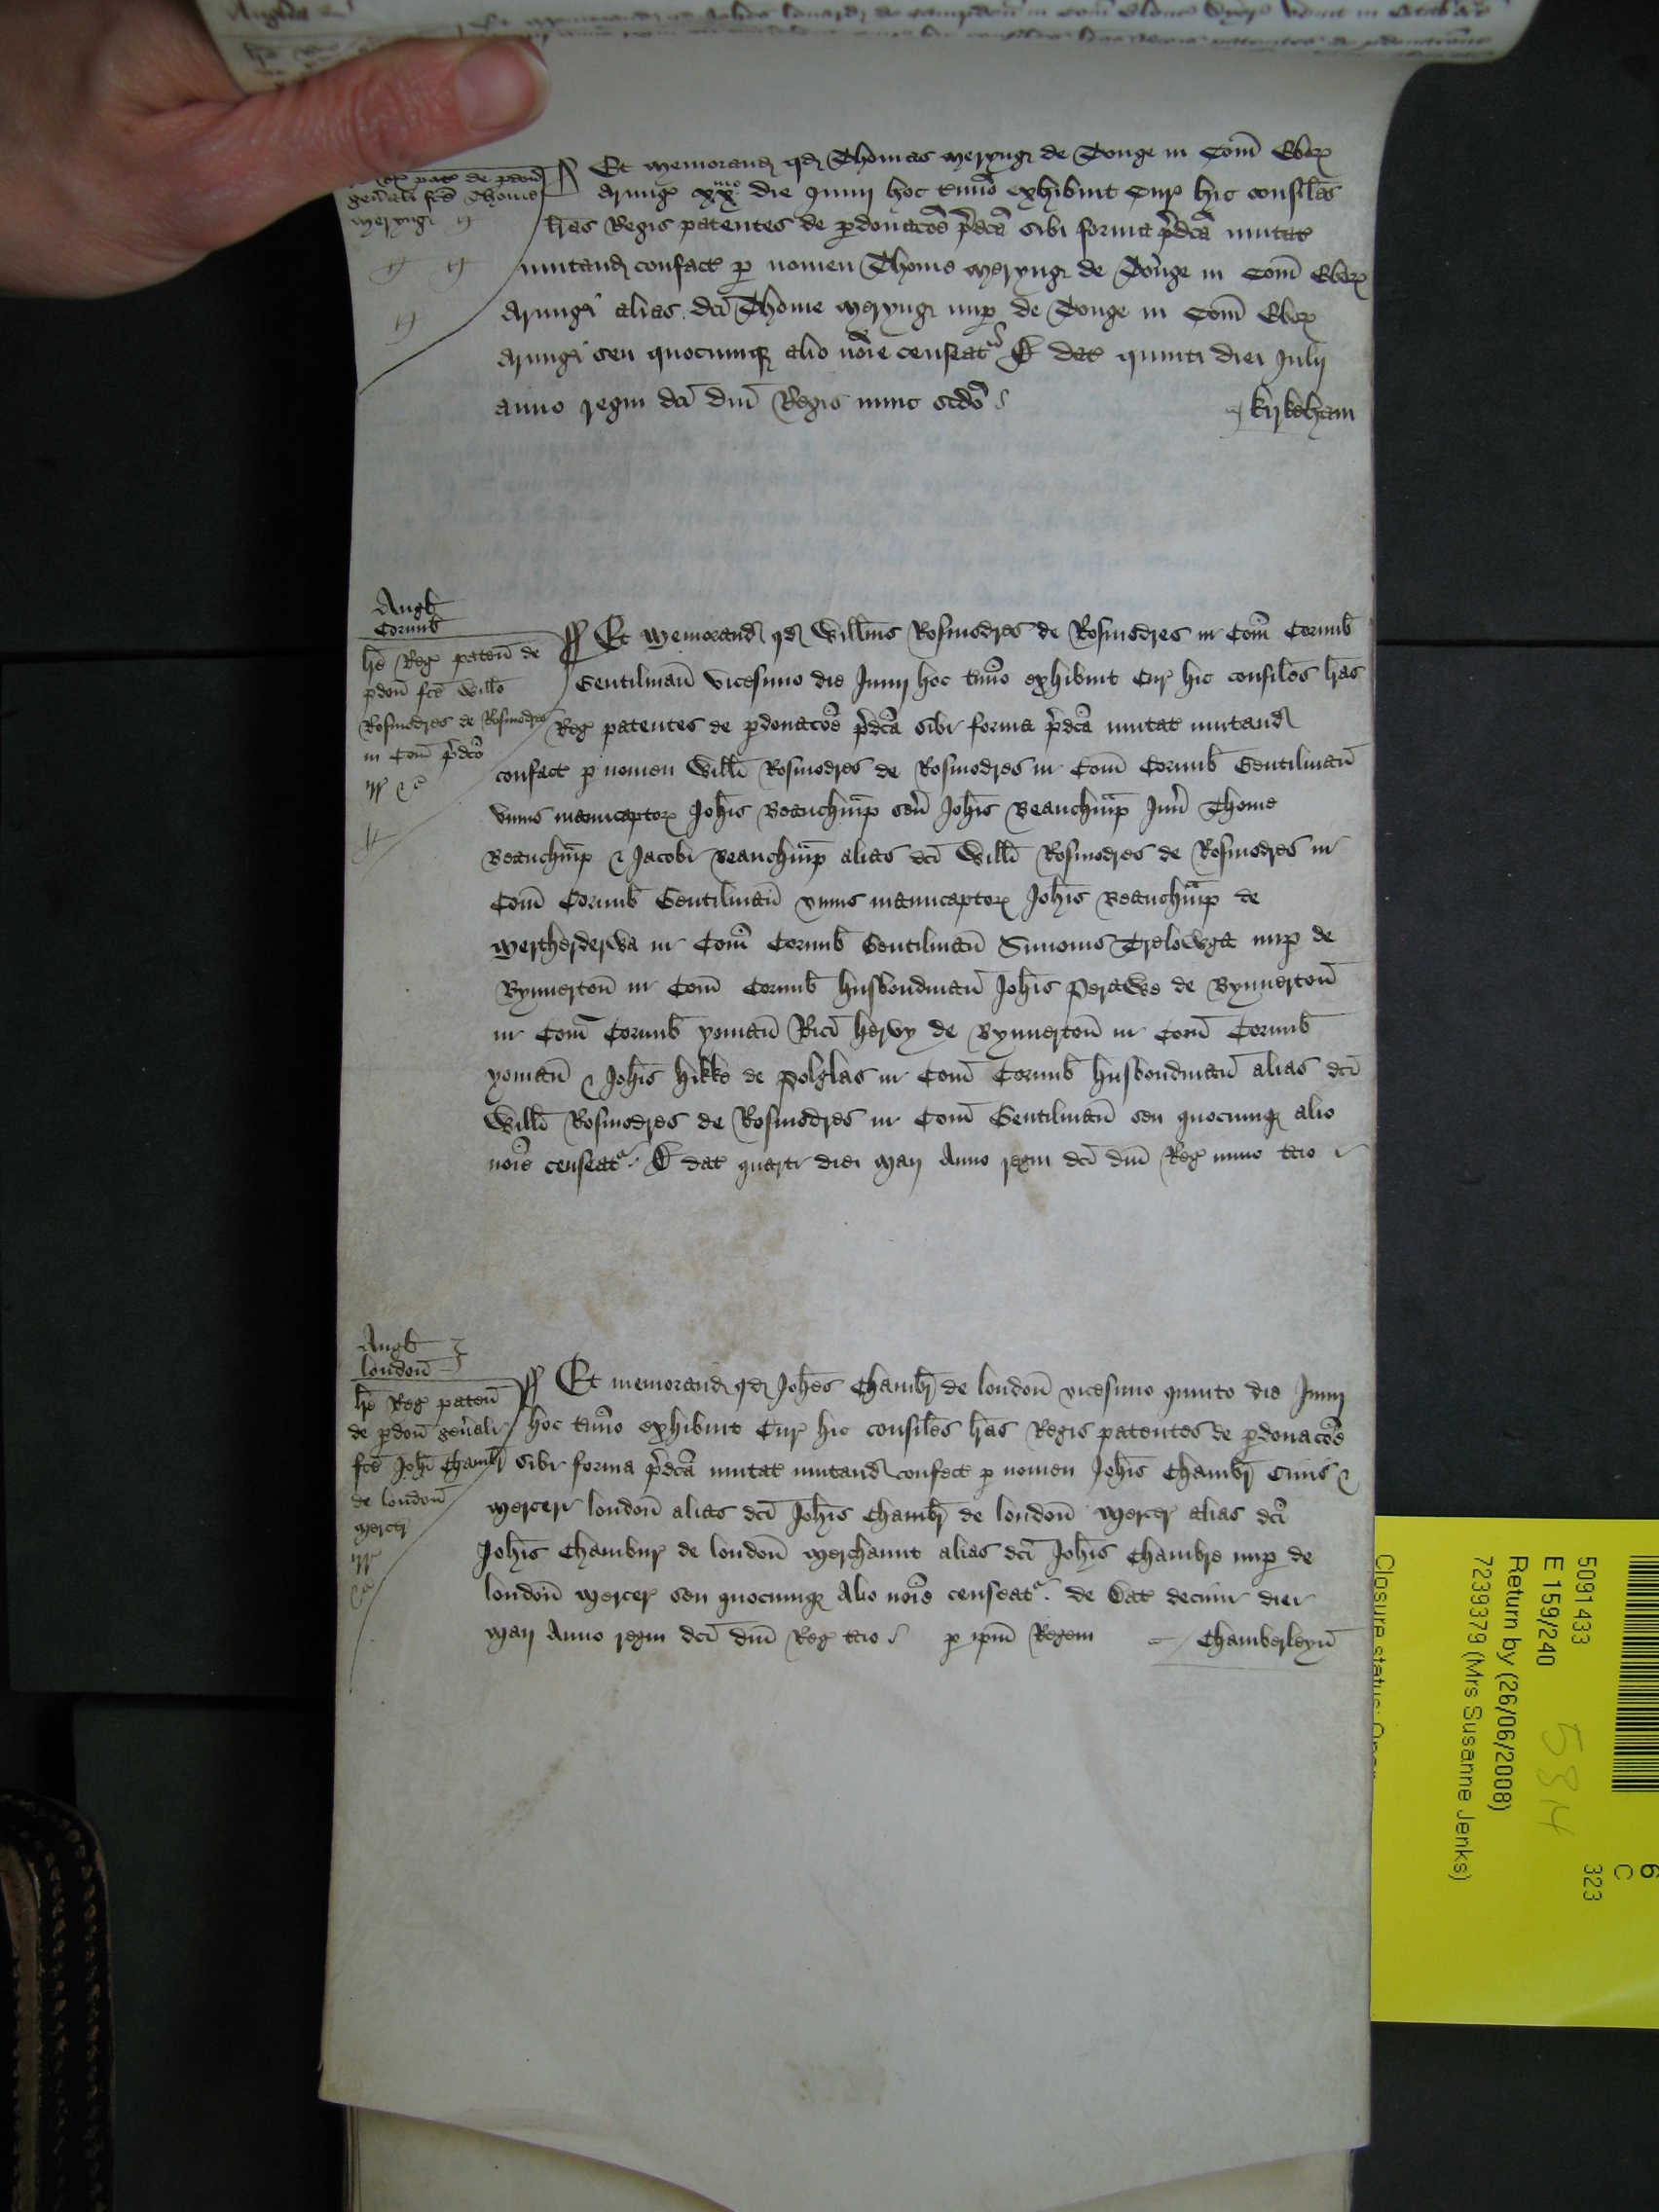 Et memorand qd Thomas Meryng de Tonge in Com Ebor
Armig xx^mo die Junii hoc tmio exhibuit Cur hic consiles
lras Regis patentes de pdonacoe pdca sibi forma pdca mutat
mutand confect p nomen Thome Meryng de Tonge in Com Ebor
Armigi alias dci Thome Meryng nup de Tonge in Com Ebor
Armigi seu quocumq alio noie censeat &c dat quinti diei Julii
anno regni dci dni Regis nunc scdo
Kirkeham
Reg pat de pdon
genali fce Thome
Meryng
Angl
Cornub
lre Reg paten de
pdon fce Willo
Rosmodres de Rosmodres
in Com pdco
Et memorand qd Willms Rosmodres de Rosmodres in Com Cornub
Gentilman vicesimo die Junii hoc tmio exhibuit Cur hic consiles lras
Reg patentes de pdonacoe pdca sibi forma pdca mutat mutand
confect p nomen Willi Rosmodres de Rosmodres in Com Cornub Gentilman
unius manucaptor Johis Beauchmp sen Johis Beauchmp Jun Thome
Beauchmp & Jacobi Beauchmp alias dci Willi Rosmodres de Rosmodres in
Com Cornub Gentilman unius manucaptor Johis Beauchmp de
Mertherderwa in Com Cornub Gentilman Simonis Trelowga nup de
Bynnerton in Com Cornub husbondman Johis Perawe de Bynnerton
in Com Cornub yoman Rici Hervy de Bynnerton in Com Cornub
yoman & Johis Hikke de Polglas in Com Cornub husbondman alias dci
Willi Rosmodres de Rosmodres in Com Gentilman seu quocumq alio
noie censeat &c dat quarti diei Maii Anno regni dci dni Reg nunc tcio
Angl
london
lre Reg paten
de pdon genali
fce Johi Chambr
de london
mercer
Et memorand qd Johes Chambr de london vicesimo quinto die Junii
hoc tmio exhibuit Cur hic consiles lras Regis patentes de pdonacoe
sibi forma pdca mutat mutand confect p nomen Johis Chambr Civis &
merceri london alias dci Johis Chambr de london mercer alias dci
Johis Chambur de london merchaunt alias dci Johis Chambre nup de
london mercer seu quocumq Alio noie censeat de dat decimi diei
Maii Anno regni dci dni Reg tcio p ipm Regem Chamberleyn
5091433
E 159/240
Return by (26/06/2008)
7239379 (Mrs Susanne Jenks)
5814
323
C
6